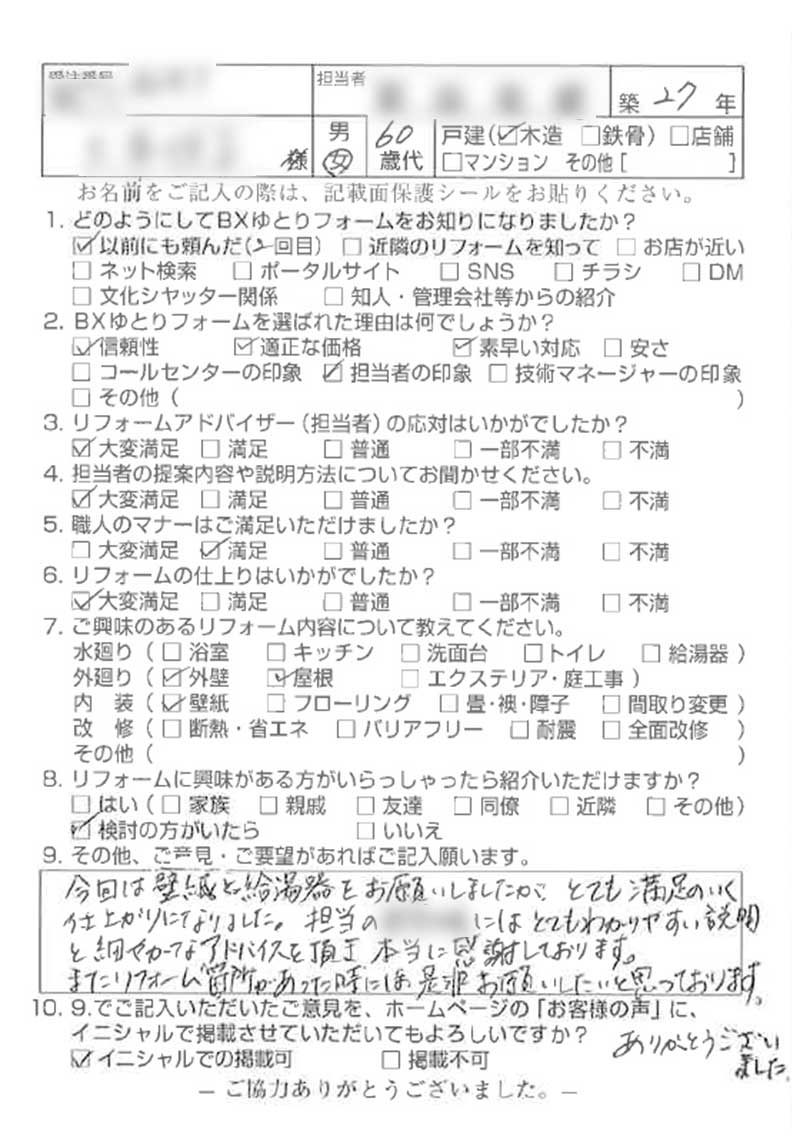 受注番号
担当者
築 27 年
様
男
女
60
歳代
戸建(☑木造 □鉄骨) □店舗
□マンション その他[ ]
お名前をご記入の際は、記載面保護シールをお貼りください。
1. どのようにしてBXゆとりフォームをお知りになりましたか?
☑以前にも頼んだ(2回目) □近隣のリフォームを知って □お店が近い
□ネット検索 □ポータルサイト □SNS □チラシ □DM
□文化シヤッター関係 □知人・管理会社等からの紹介
2. BXゆとりフォームを選ばれた理由は何でしょうか?
☑信頼性 ☑適正な価格 ☑素早い対応 □安さ
□コールセンターの印象 ☑担当者の印象 □技術マネージャーの印象
□その他( )
3. リフォームアドバイザー(担当者)の応対はいかがでしたか?
☑大変満足 □満足 □普通 □一部不満 □不満
4. 担当者の提案内容や説明方法についてお聞かせください。
☑大変満足 □満足 □普通 □一部不満 □不満
5. 職人のマナーはご満足いただけましたか?
□大変満足 ☑満足 □普通 □一部不満 □不満
6. リフォームの仕上りはいかがでしたか?
☑大変満足 □満足 □普通 □一部不満 □不満
7. ご興味のあるリフォーム内容について教えてください。
水廻り(□浴室 □キッチン □洗面台 □トイレ □給湯器)
外廻り(☑外壁 ☑屋根 □エクステリア・庭工事)
内 装(☑壁紙 □フローリング □畳・襖・障子 □間取り変更)
改 修(□断熱・省エネ □バリアフリー □耐震 □全面改修)
その他( )
8. リフォームに興味がある方がいらっしゃったら紹介いただけますか?
□はい(□家族 □親戚 □友達 □同僚 □近隣 □その他)
☑検討の方がいたら □いいえ
9. その他、ご意見・ご要望があればご記入願います。
今回は壁紙と給湯器をお願いしましたが、とても満足のいく
仕上がりになりました。担当の には とてもわかりやすい説明
と細やかなアドバイスを頂き 本当に感謝しております。
またリフォーム箇所があった時には是非お願いしたいと思っております。
10. 9.でご記入いただいたご意見を、ホームページの「お客様の声」に、
イニシャルで掲載させていただいてもよろしいですか?
☑イニシャルでの掲載可 □掲載不可
ありがとうござい
ました
－ご協力ありがとうございました。－